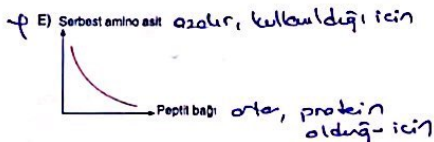 E) Serbest amino asit azalır, kullanıldığı için
Peptit bağı artar, protein
olduğu için